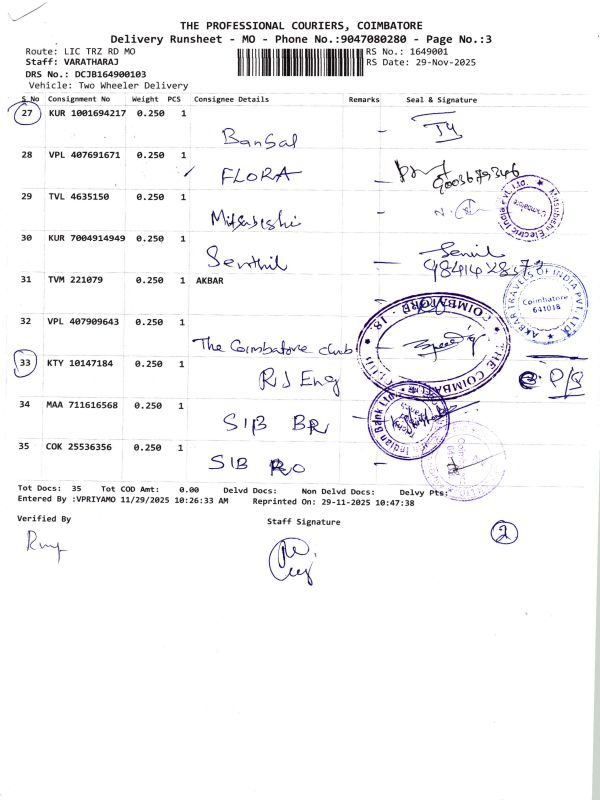 THE PROFESSIONAL COURIERS, COIMBATORE
Delivery Runsheet - MO - Phone No.:9047080280 - Page No.:3
Route: LIC TRZ RD MO
RS No.: 1649001
Staff: VARATHARAJ
RS Date: 29-Nov-2025
DRS No.: DCJB164900103
Vehicle: Two Wheeler Delivery
S.No Consignment No Weight PCS Consignee Details Remarks Seal & Signature
27 KUR 1001694217 0.250 1
Bansal
28 VPL 407691671 0.250 1
FLORA
9003679346
29 TVL 4635150 0.250 1
Mitsubishi
Mitsubishi Electric India Pvt. Ltd. Coimbatore
30 KUR 7004914949 0.250 1
Senthil
31 TVM 221079 0.250 1 AKBAR
AKBAR TRAVELS OF INDIA PVT. LTD
Coimbatore
641018
32 VPL 407909643 0.250 1
The Coimbatore club
THE COIMBATORE
COIMBATORE - 18.
33 KTY 10147184 0.250 1
RJ Eng
34 MAA 711616568 0.250 1
SIB BR
Indian Bank Ltd.
35 COK 25536356 0.250 1
SIB RO
Tot Docs: 35 Tot COD Amt: 0.00 Delvd Docs: Non Delvd Docs: Delvy Pts:
Entered By :VPRIYAMO 11/29/2025 10:26:33 AM Reprinted On: 29-11-2025 10:47:38
Verified By
Staff Signature
2